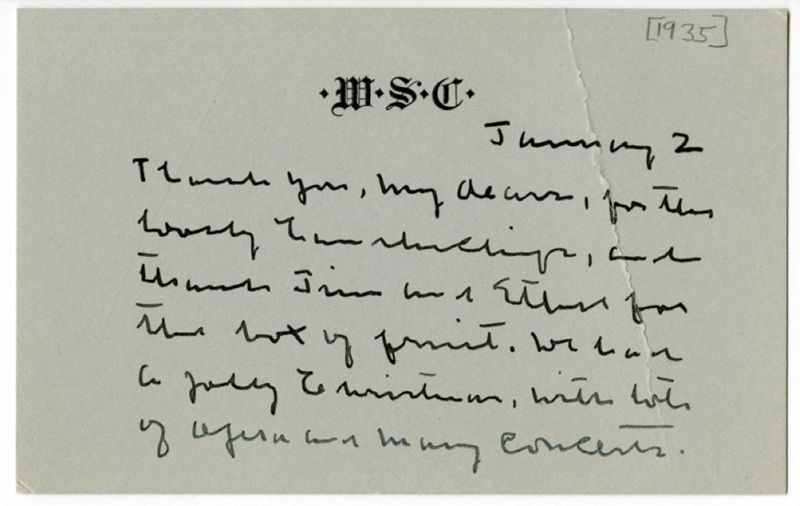 [1935]
·W·S·C·
January 2
Thank you, my dears, for the
lovely handkerchiefs, and
thank Jim and Ethel for
the box of fruit. We had
a jolly Christmas, with lots
of opera and many concerts.